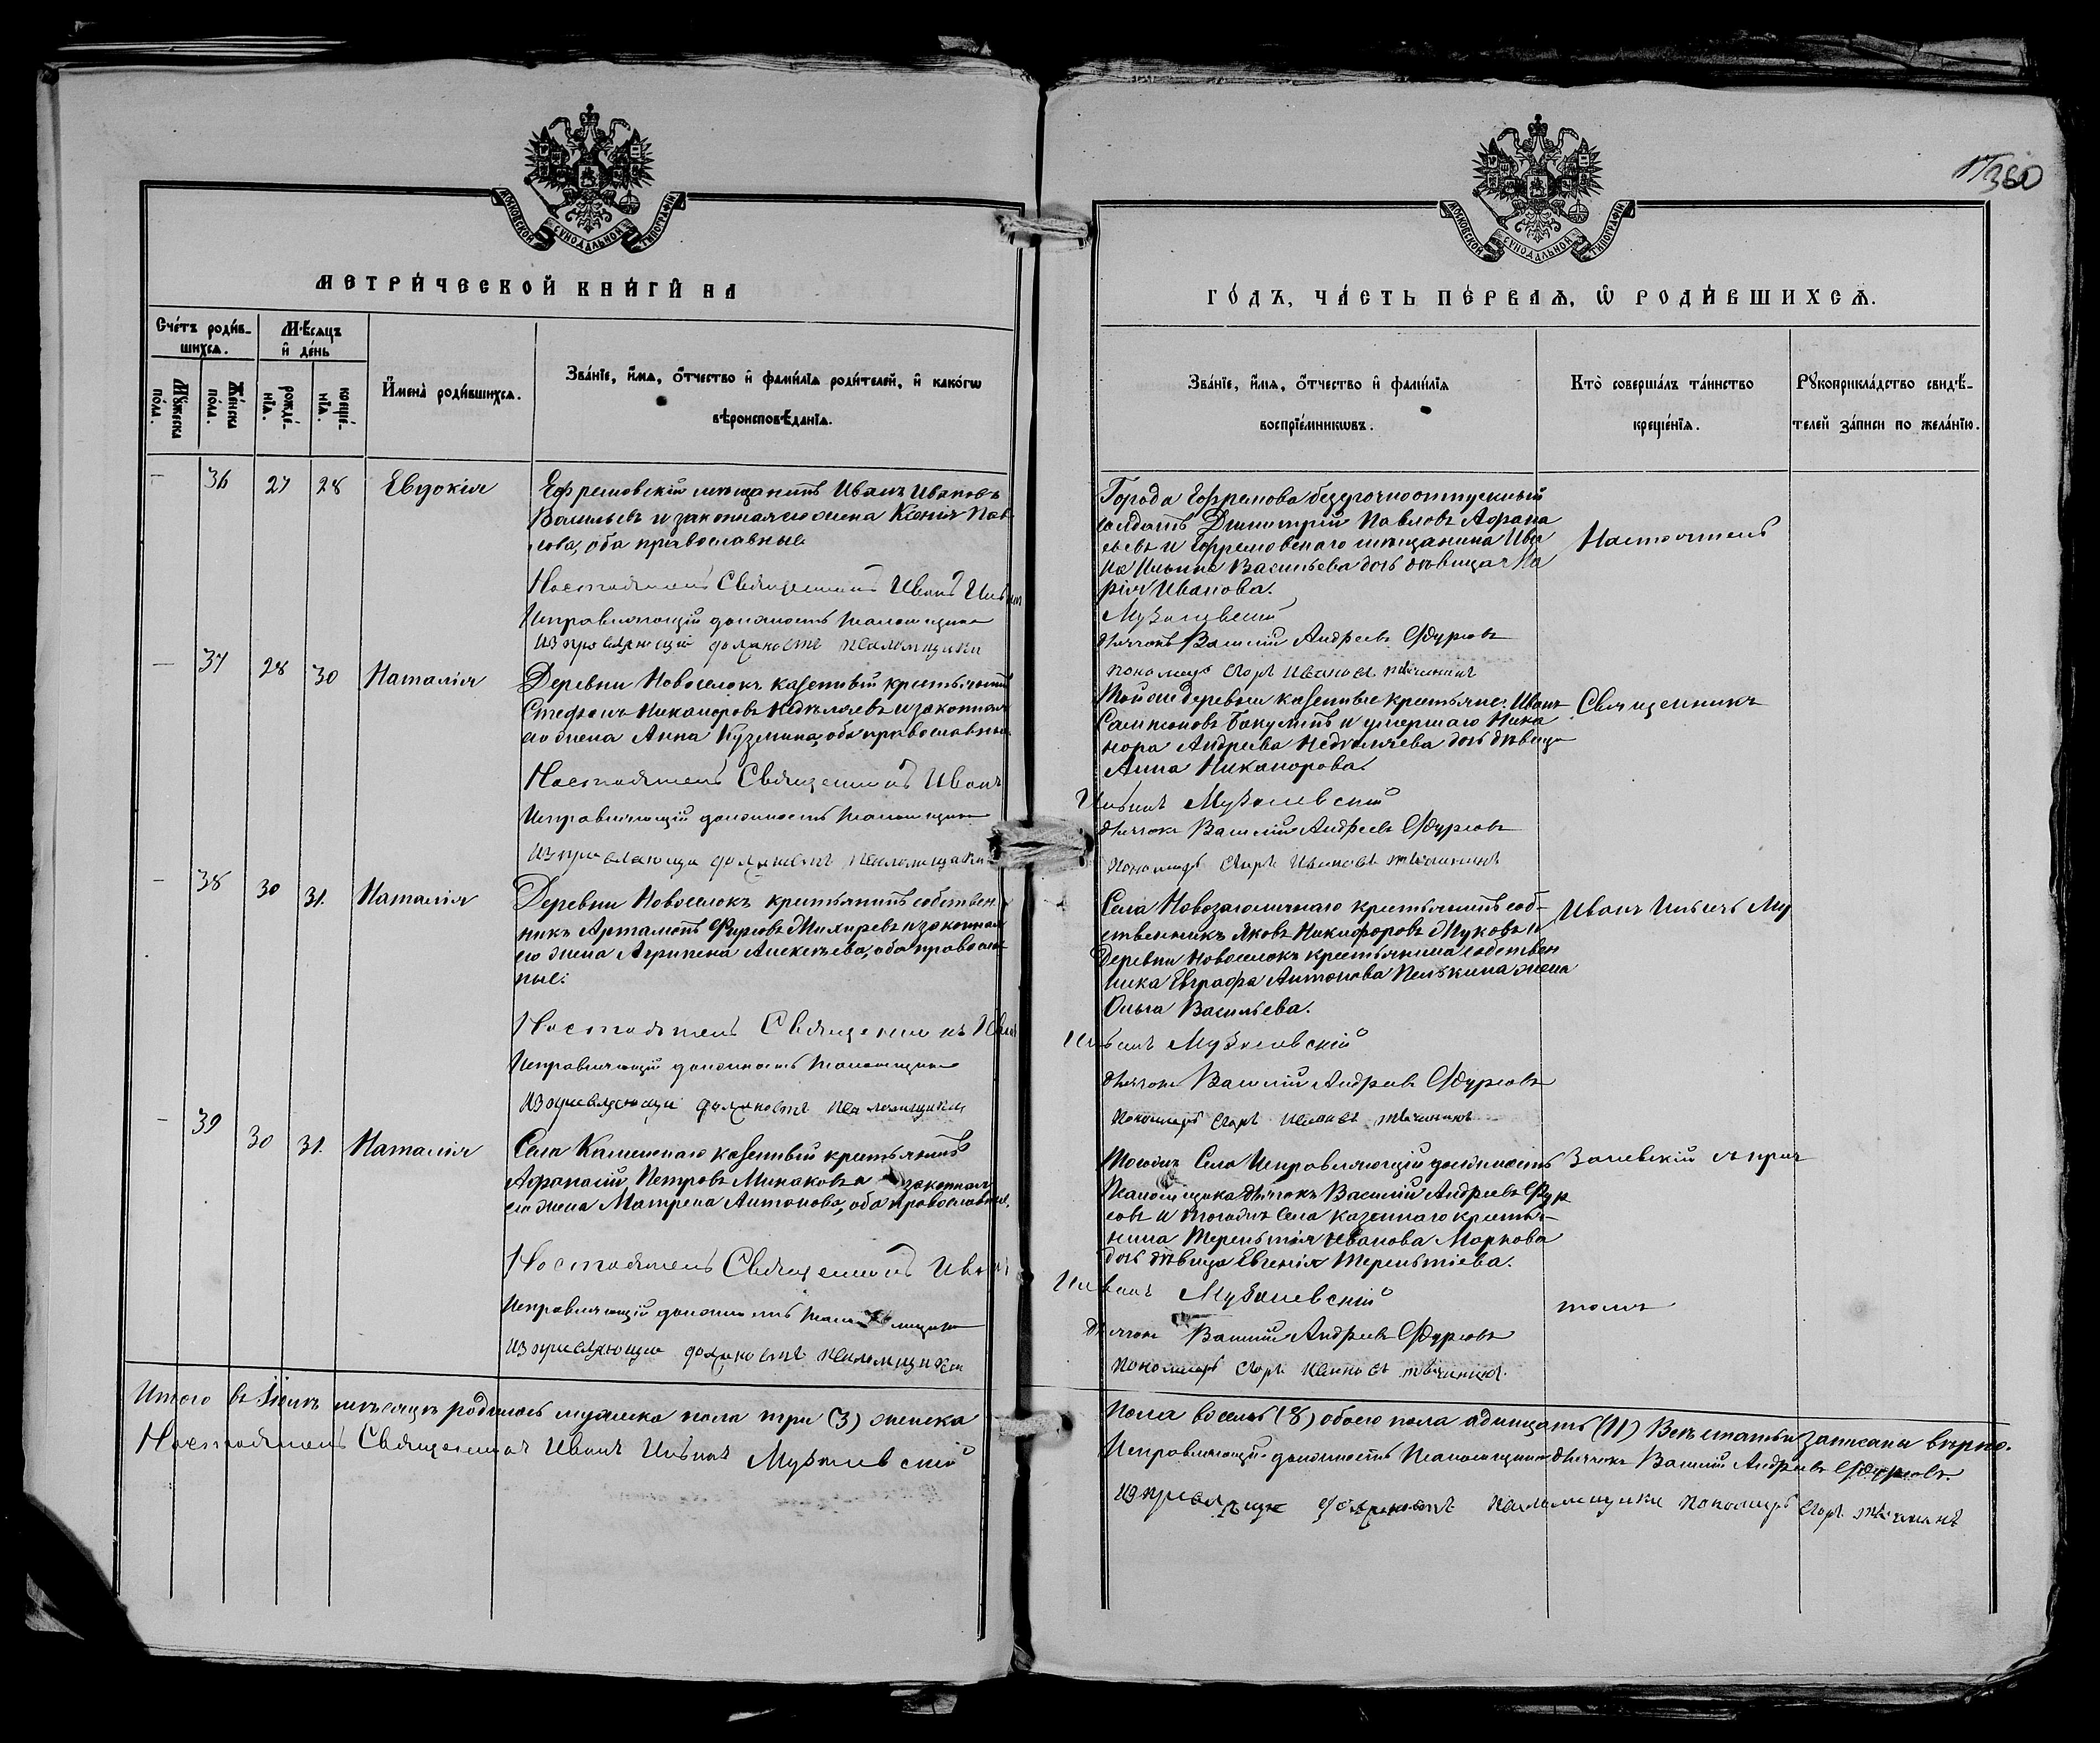 МОСКОВСКОЙ СѴНОДАЛЬНОЙ ТИПОГРАФІИ
МЕТРИ́ЧЕСКОЙ КНИ́ГИ НА
Сче́тъ роди́в-
шихсѧ.
Мѣ́сѧцъ
и҆ де́нь
Мꙋ́жеска
по́ла.
Же́нска
по́ла.
рожде́-
нїѧ.
креще́-
нїѧ.
И҆мена̀ роди́вшихсѧ.
Зва́нїе, и҆́мѧ, ѻ҆́тчество и҆ фамі́лїѧ роди́телей, и҆ како́гѡ
вѣроисповѣ́данїѧ.
— 36 27 28 Евдокія
Ефремовскій мѣщанинъ Иванъ Ивановъ
Васильевъ и законная его жена Ксенія Пав-
лова, оба православные
Настоятель Священникъ Иванъ Ильинъ
Исправляющій должность Псаломщика
Изправляющій должность псаломщика
— 37 28 30 Наталія
Деревни Новоселокъ казенный крестьянинъ
Стефанъ Никаноровъ Недѣляевъ и законная
его жена Анна Кузмина, оба православные
Настоятель Священникъ Иванъ
Исправляющій должность Псаломщика
Изправляющи должность псаломщика
— 38 30 31. Наталія
Деревни Новоселокъ крестьянинъ собствен-
никъ Артамонъ Фирсовъ Жихиревъ и законная
его жена Агрипена Алексѣева, оба православ-
ные.
Настоятель Священникъ Иванъ
Исправляющій должность Псаломщика
Изправляющи должность псаломщика
— 39 30 31. Наталія
Села Каменскаго казенный крестьянинъ
Афанасій Петровъ Минаковъ и законная
его жена Матрена Антонова, оба православные.
Настоятель Священникъ Иванъ
Исправляющій должность Псаломщика
Изправляющи должность псаломщика
Итого въ мѣсяцѣ родилось мужеска пола три (3) женска
Настоятель Священникъ Иванъ Ильинъ
360
МОСКОВСКОЙ СѴНОДАЛЬНОЙ ТИПОГРАФІИ
ГО́ДЪ, ЧА́СТЬ ПЕ́РВАѦ, Ѡ҆ РОДИ́ВШИХСѦ.
Зва́нїе, и҆́мѧ, ѻ҆́тчество и҆ фамі́лїѧ
воспрїе́мникѡвъ.
Кто̀ соверша́лъ та́инство
креще́нїѧ.
Рꙋкоприкла́дство свидѣ́-
телей за́писи по жела́нїю.
Города Ефремова безсрочноотпускный
солдатъ Димитрій Павловъ Афана-
сьевъ и Ефремовскаго мѣщанина Ива-
на Ильина Васильева дочь дѣвица Ма-
рія Иванова.
Настоятель
дьячокъ Василій Андреевъ Фурсовъ
пономарь Ивановъ
Той же деревни казенные крестьяне: Иванъ
Сампсоновъ и умершаго Ника-
нора Андреева Недѣляева дочь дѣвица
Анна Никанорова.
Священникъ
Ильинъ
дьячокъ Василій Андреевъ Фурсовъ
пономарь Ивановъ
Села крестьянинъ соб-
ственникъ Яковъ Никифоровъ Жуковъ и
Деревни Новоселокъ крестьянина собствен-
ника Евграфа Антонова жена
Ольга Васильева.
Иванъ Ильичъ
Ильинъ
дьячокъ Василій Андреевъ Фурсовъ
пономарь Ивановъ
Тогожъ Села Исправляющій должность
Псаломщика дьячокъ Василій Андреевъ Фур-
совъ и тогожъ Села казеннаго крестья-
нина Терентія Иванова Маркова
дочь дѣвица Евгенія Терентіева.
съ прич-
томъ
Ильинъ
дьячокъ Василій Андреевъ Фурсовъ
пономарь Ивановъ
пола восемь (8) обоего пола одинцать (11) Всѣ статьи записаны вѣрно.
Исправляющій должность Псаломщика дьячокъ Василій Андреевъ Фурсовъ.
должность псаломщика пономарь